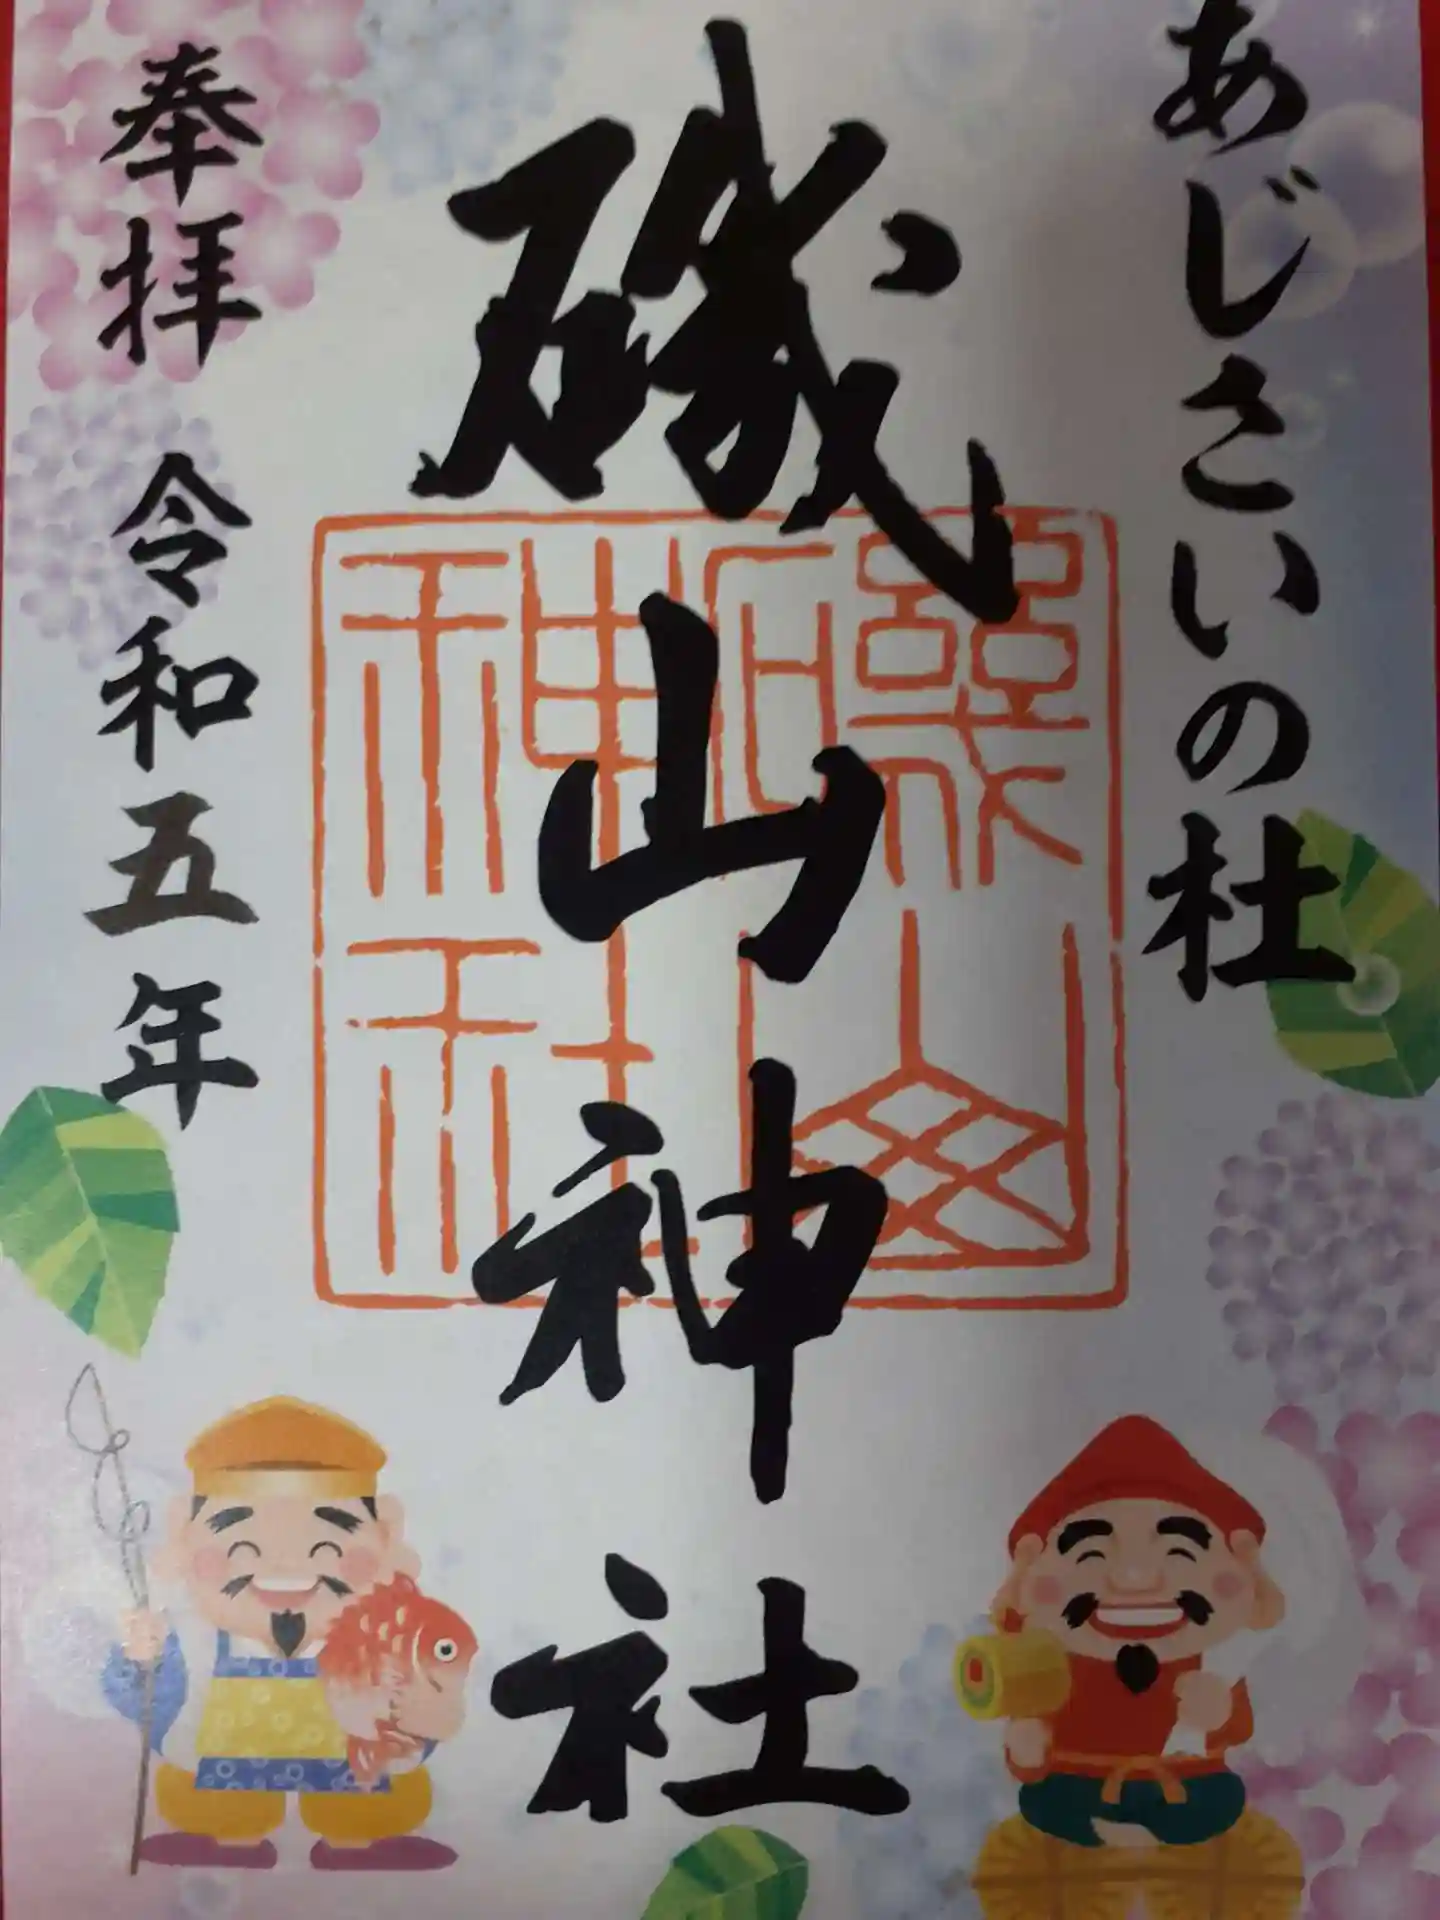 あじさいの杜
磯山神社
磯山
神社
奉拝 令和五年